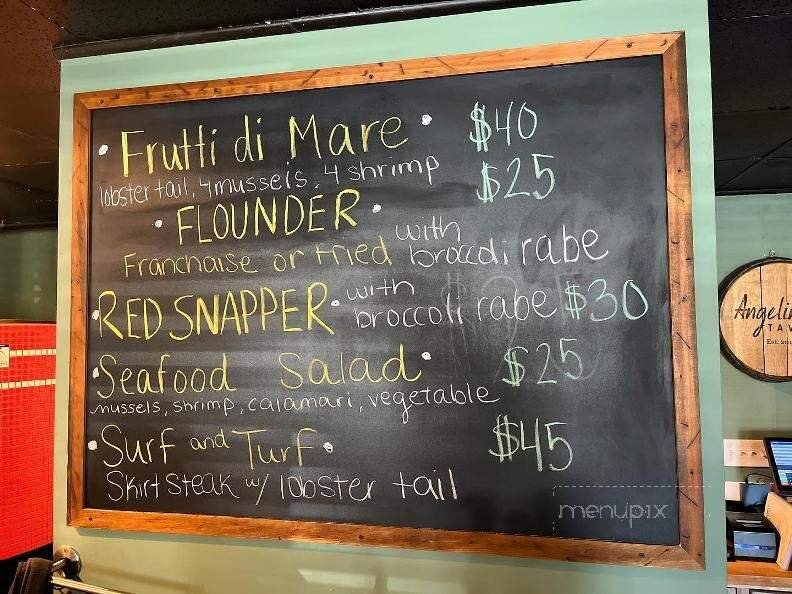 • Frutti di Mare • $40
lobster tail, 4 mussels, 4 shrimp $25
• FLOUNDER •
Franchaise or Fried with broccoli rabe
• RED SNAPPER • with broccoli rabe $30
• Seafood Salad • $25
mussels, shrimp, calamari, vegetable
• Surf and Turf • $45
Skirt Steak w/ lobster tail
menupix
Angelin
TAV